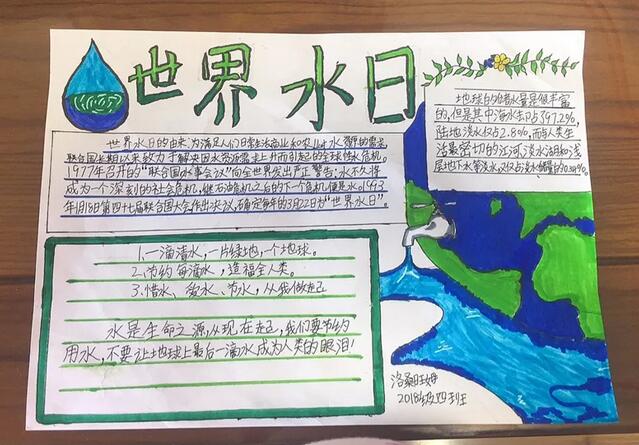 世界水日
世界水日的由来为满足人们日常生活商业和农业对水资源的需求,
联合国长期以来致力于解决因水资源需求上升而引起的全球性水危机。
1977年召开的“联合国水事会议”向全世界发出严正警告:水不久将
成为一个深刻的社会危机,继石油危机之后的下一个危机便是水。1993
年1月18日第四十七届联合国大会作出决议,确定每年的3月22日为“世界水日”。
地球的储水量是很丰富
的,但是其中海水却占了97.2%,
陆地淡水仅占2.8%,而与人类生
活最密切的江河、淡水湖和浅
层地下水等淡水,又仅占淡水储量的0.34%。
1.一滴清水,一片绿地,一个地球。
2.节约每滴水,造福全人类。
3.惜水、爱水、节水,从我做起
水是生命之源,从现在起,我们要节约
用水,不要让地球上最后一滴水成为人类的眼泪!
洛桑旺姆
2018级四班